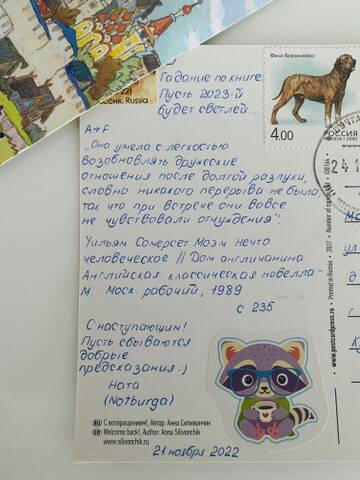 421
оссия, Russia
Гадание по книге:
Пусть 2023-й
будет светлей...
Фила бразилейро
4.00
РОССИЯ
RUSSIA • 2020
24 1
A+F
„Она умела с легкостью
возобновлять дружеские
отношения после долгой разлуки,
словно никакого перерыва не было,
так что при встрече они вовсе
не чувствовали отчуждения".
Уильям Сомерсет Моэм Нечто
человеческое // Дом англичанина:
Английская классическая новелла.-
М.: Моск. рабочий, 1989
с 235
С наступающим!
Пусть сбываются
добрые
предсказания :)
Ната
(Notburga)
RU С возвращением!, Автор: Анна Силивончик
GB Welcome back!, Author: Anna Silivonchik
www.silivonchik.ru
21 ноября 2022
www.postcardpress.ru • Printed in Russia • 2017 • Number of